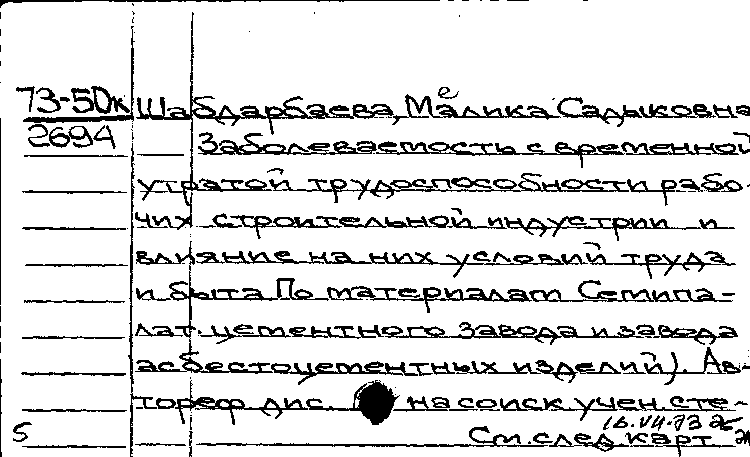 73-50к
2694
Шабдарбаева, Малика Садыковна
е
Заболеваемость с временной
утратой трудоспособности рабо-
чих строительной индустрии и
влияние на них условий труда
и быта По материалам Семипа-
лат. цементного завода и завода
асбестоцементных изделий). Ав-
тореф дис. на соиск. учен. сте-
16.VII.73
5
См. след. карт